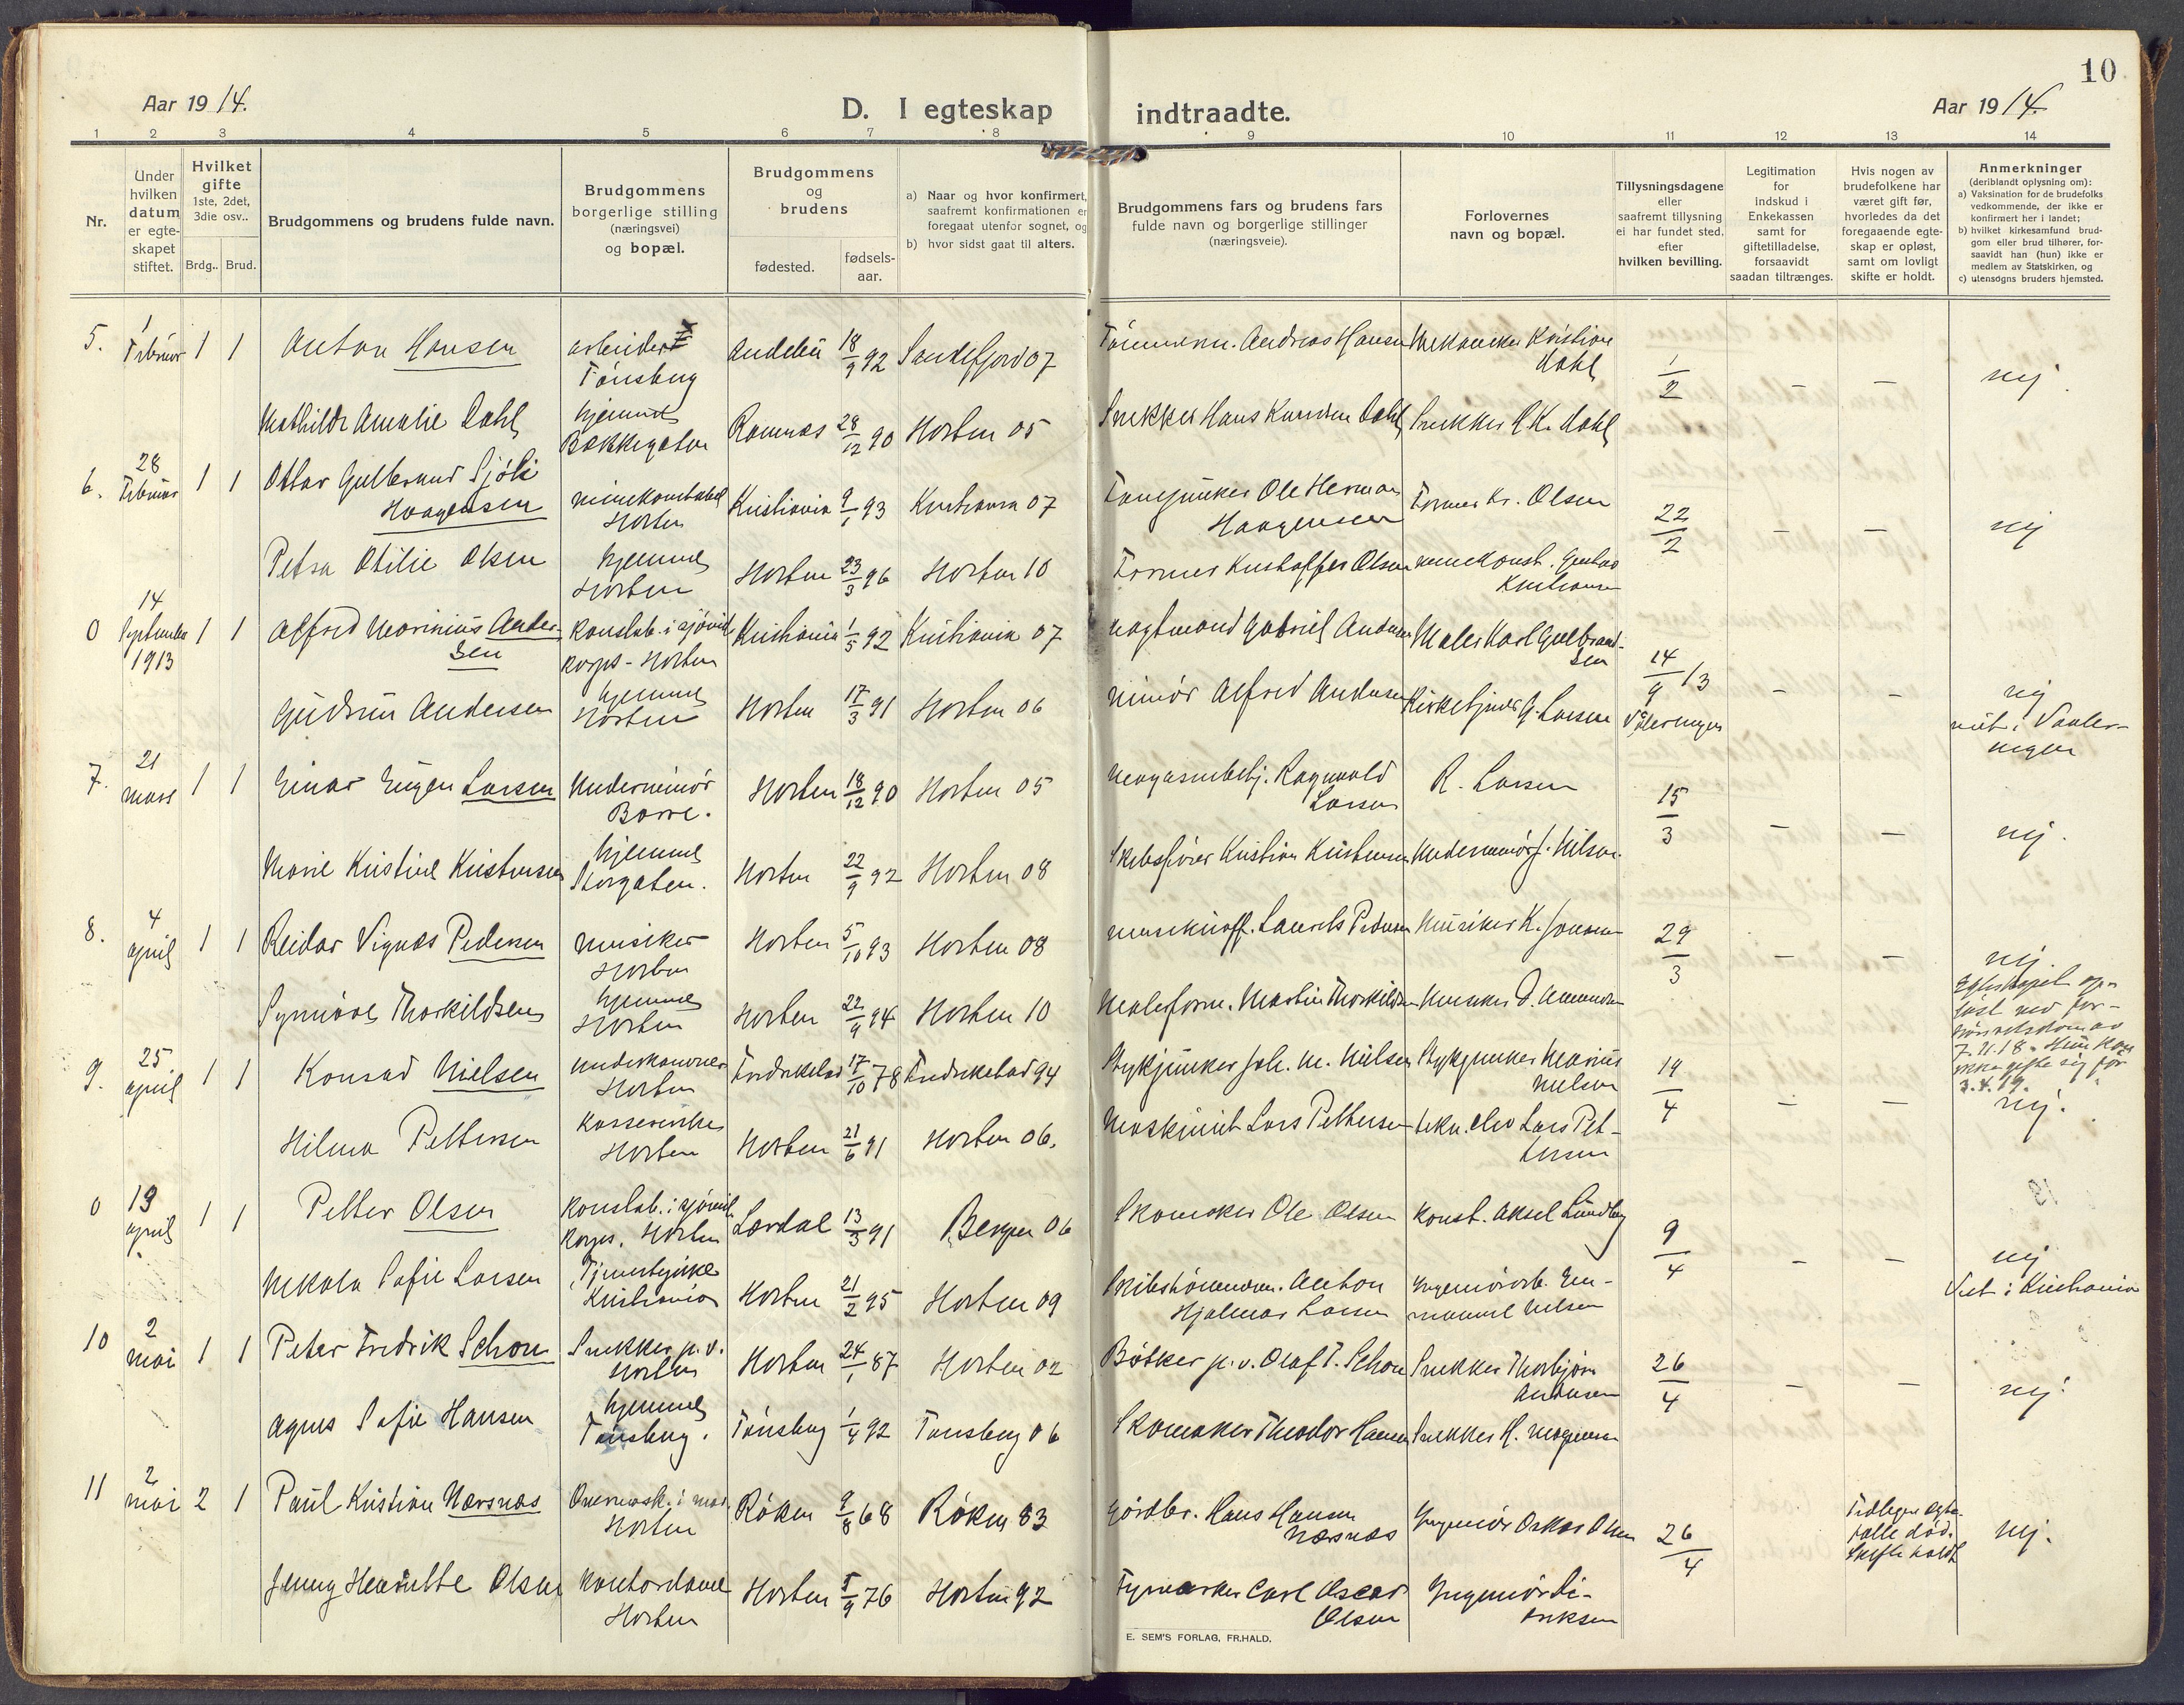 10
Aar 1914.
D. I egteskap indtraadte.
Aar 1914.
1 2 3 4 5 6 7 8 9 10 11 12 13 14
Nr.
Under hvilken datum er egteskapet stiftet.
Hvilket gifte 1ste, 2det, 3die osv..
Brdg.. Brud.
Brudgommens og brudens fulde navn.
Brudgommens borgerlige stilling (næringsvei) og bopæl.
Brudgommens og brudens
fødested.
fødsels-aar.
a) Naar og hvor konfirmert,
saafremt konfirmationen er
foregaat utenfor sognet, og
b) hvor sidst gaat til alters.
Brudgommens fars og brudens fars
fulde navn og borgerlige stillinger
(næringsveie).
Forlovernes
navn og bopæl.
Tillysningsdagene
eller
saafremt tillysning
ei har fundet sted,
efter
hvilken bevilling.
Legitimation
for
indskud i
Enkekassen
samt for
giftetilladelse,
forsaavidt
saadan tiltrænges.
Hvis nogen av
brudefolkene har
været gift før,
hvorledes da det
foregaaende egte-
skap er opløst,
samt om lovligt
skifte er holdt.
Anmerkninger
(deriblandt oplysning om):
a) Vaksination for de brudefolks
vedkommende, der ikke er
konfirmert her i landet;
b) hvilket kirkesamfund brud-
gom eller brud tilhører, for-
saavidt han (hun) ikke er
medlem av Statskirken, og
c) utensogns bruders hjemsted.
5. 1 Februar 1 1 Anton Hansen arbeider Tønsberg Andebu 18/9 92 Sandefjord 07 Andreas Hansen Kristian Dahl 1/2 – – nej.
Mathilde Amalie Dahl hjemme Bakkegaten Ramnæs 28/12 90 Horten 05 Snekker Hans Knudsen Dahl Snekker H. K. Dahl
6. 28 Februar 1 1 Ottar Gulbrand Sjøli Haagensen minekonstabel Horten Kristiania 9/1 93 Kristiania 07 Ole Herman Haagensen Former Kr. Olsen 22/2 – – nej
Petra Otilie Olsen hjemme Horten Horten 23/3 96 Horten 10 Former Kristoffer Olsen minekonst. Gustav Kristiansen
0 14 September 1913 1 1 Alfred Marinius Andersen Konstab. i sjømil. korps - Horten Kristiania 1/5 92 Kristiania 07 Vagtmand Gabriel Andersen Maler Karl Gulbrandsen 14/9 13 Vålerengen – – nej viet i Vaalerengen
Gudrun Andersen hjemme Horten Horten 17/3 91 Horten 06 minør Alfred Andersen Kirketjener G. Larsen
7. 21 mars 1 1 Einar Eugen Larsen Underminør Borre. Horten 18/12 90 Horten 05 Ragnvald Larsen R. Larsen 15/3 – – nej.
Marie Kristine Kristensen hjemme Storgaten. Horten 22/9 92 Horten 08 Skibsfører Kristian Kristensen Underminør J. Nilsen.
8. 4 april 1 1 Reidar Vignæs Pedersen musiker Horten Horten 5/10 93 Horten 08 Laurits Pedersen Musiker K. Jonassen 29/3 – – nej.
Synnøve Thorkildsen hjemme Horten Horten 22/9 94 Horten 10 Malerform. Martin Thorkildsen Musiker O. Amundsen
Egteskapet op-
løst ved for-
hørsretsdom av
7.11.18. Hun kan
ikke gifte sig før
3.4.19.
9. 25 april 1 1 Konrad Nielsen underkanoner Horten Fredrikstad 17/10 78 Fredrikstad 94 Stykjunker Joh. M. Nielsen Stykjunker Marius Nielsen 19/4 – – nej.
Hilma Pettersen Kassererske Horten Horten 21/6 91 Horten 06. Maskinist Lars Pettersen tekn. elev Lars Pettersen
0 19 april 1 1 Petter Olsen Konstab. i sjømil. korps. Horten Lærdal 13/3 91 Bergen 06 Skomaker Ole Olsen Konst. Aksel Lundberg 9/4 – – nej Viet i Kristiania
Nikola Sofie Larsen Tjenestepike Kristiania Horten 21/2 95 Horten 09 Skibstømmerm. Anton Hjalmar Larsen Emmanuel Nilsen
10 2 mai 1 1 Peter Fredrik Schou Snekker p. v. Horten Horten 24/1 87 Horten 02 Bøtker p. v. Olaf T. Schou Snekker Thorbjørn Andersen 26/4 – – nej.
Agnes Sofie Hansen hjemme Tønsberg. Tønsberg 1/4 92 Tønsberg 06 Skomaker Theodor Hansen Snekker H. Mogensen
11 2 mai 2 1 Paul Kristian Nærsnæs Horten Røken 9/8 68 Røken 83 Gårdbr. Hans Hansen Nærsnæs Ingeniør Oskar Olsen 26/4 Tidligere egtefælle død. Skifte holdt nej.
Jenny Henriette Olsen kontordame Horten Horten 5/9 76 Horten 92 Fyrværker Carl Oscar Olsen Ingeniør Eriksen
E. SEM'S FORLAG, FR.HALD.